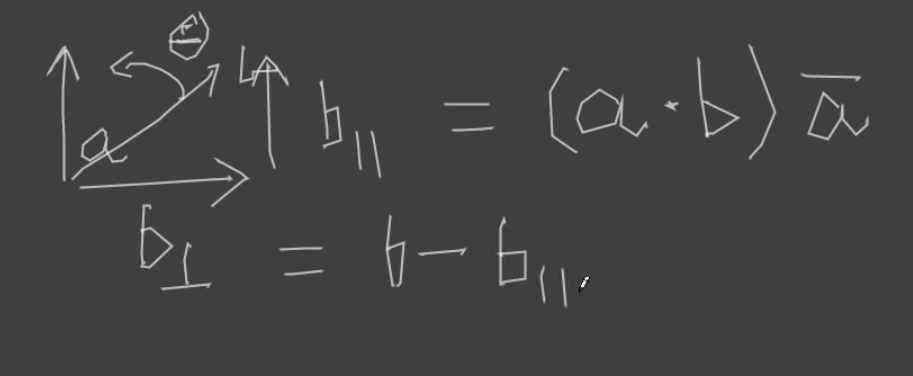 θ
a b b∥ = (a · b) a̅
b⊥ = b − b∥